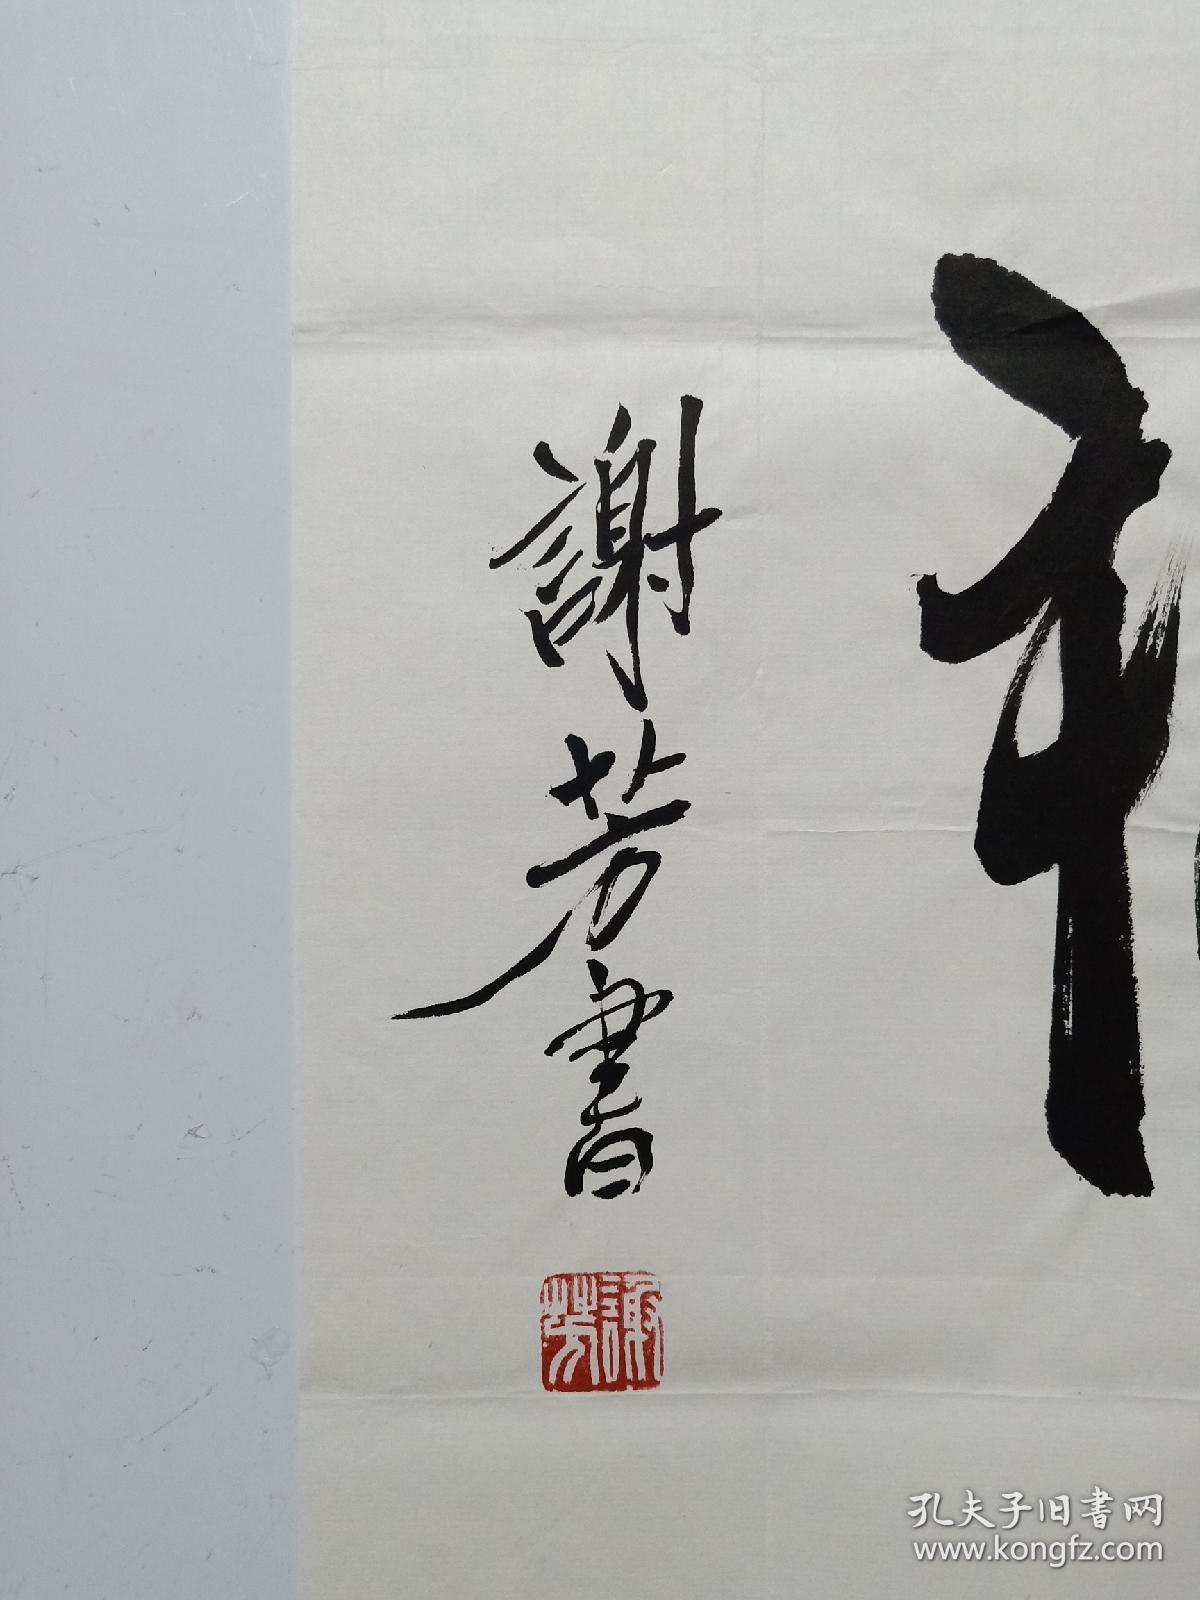 謝芳書
謝芳
孔夫子旧书网
www.kongfz.com